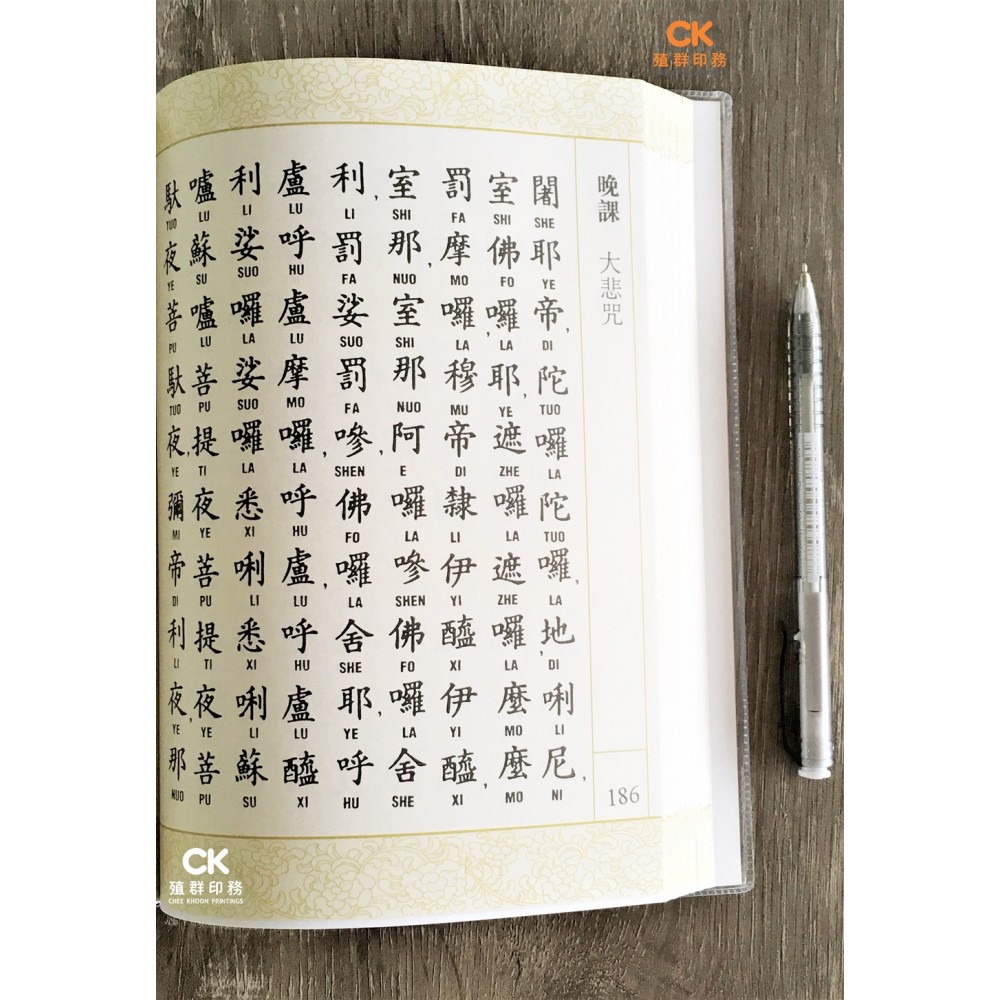 CK
殖群印務
晚課 大悲咒
闍耶帝,陀囉陀囉,地唎尼,
SHE YE DI TUO LA TUO LA DI LI NI
室佛囉,耶,遮囉遮囉,麼麼
SHI FO LA YE ZHE LA ZHE LA MO MO
罰摩囉,穆帝隸伊醯伊醯,
FA MO LA MU DI LI YI XI YI XI
室那,室那阿囉嘇佛囉舍
SHI NUO SHI NUO E LA SHEN FO LA SHE
利,罰娑罰嘇,佛囉舍耶,呼
LI FA SUO FA SHEN FO LA SHE YE HU
盧呼盧摩囉,呼盧,呼盧醯
LU HU LU MO LA HU LU HU LU XI
利娑囉娑囉悉唎悉唎蘇
LI SUO LA SUO LA XI LI XI LI SU
嚧蘇嚧菩提夜菩提夜菩
LU SU LU PU TI YE PU TI YE PU
馱夜菩馱夜,彌帝利夜,那
TUO YE PU TUO YE MI DI LI YE NUO
186
CK
殖群印務
CHEE KHOON PRINTINGS